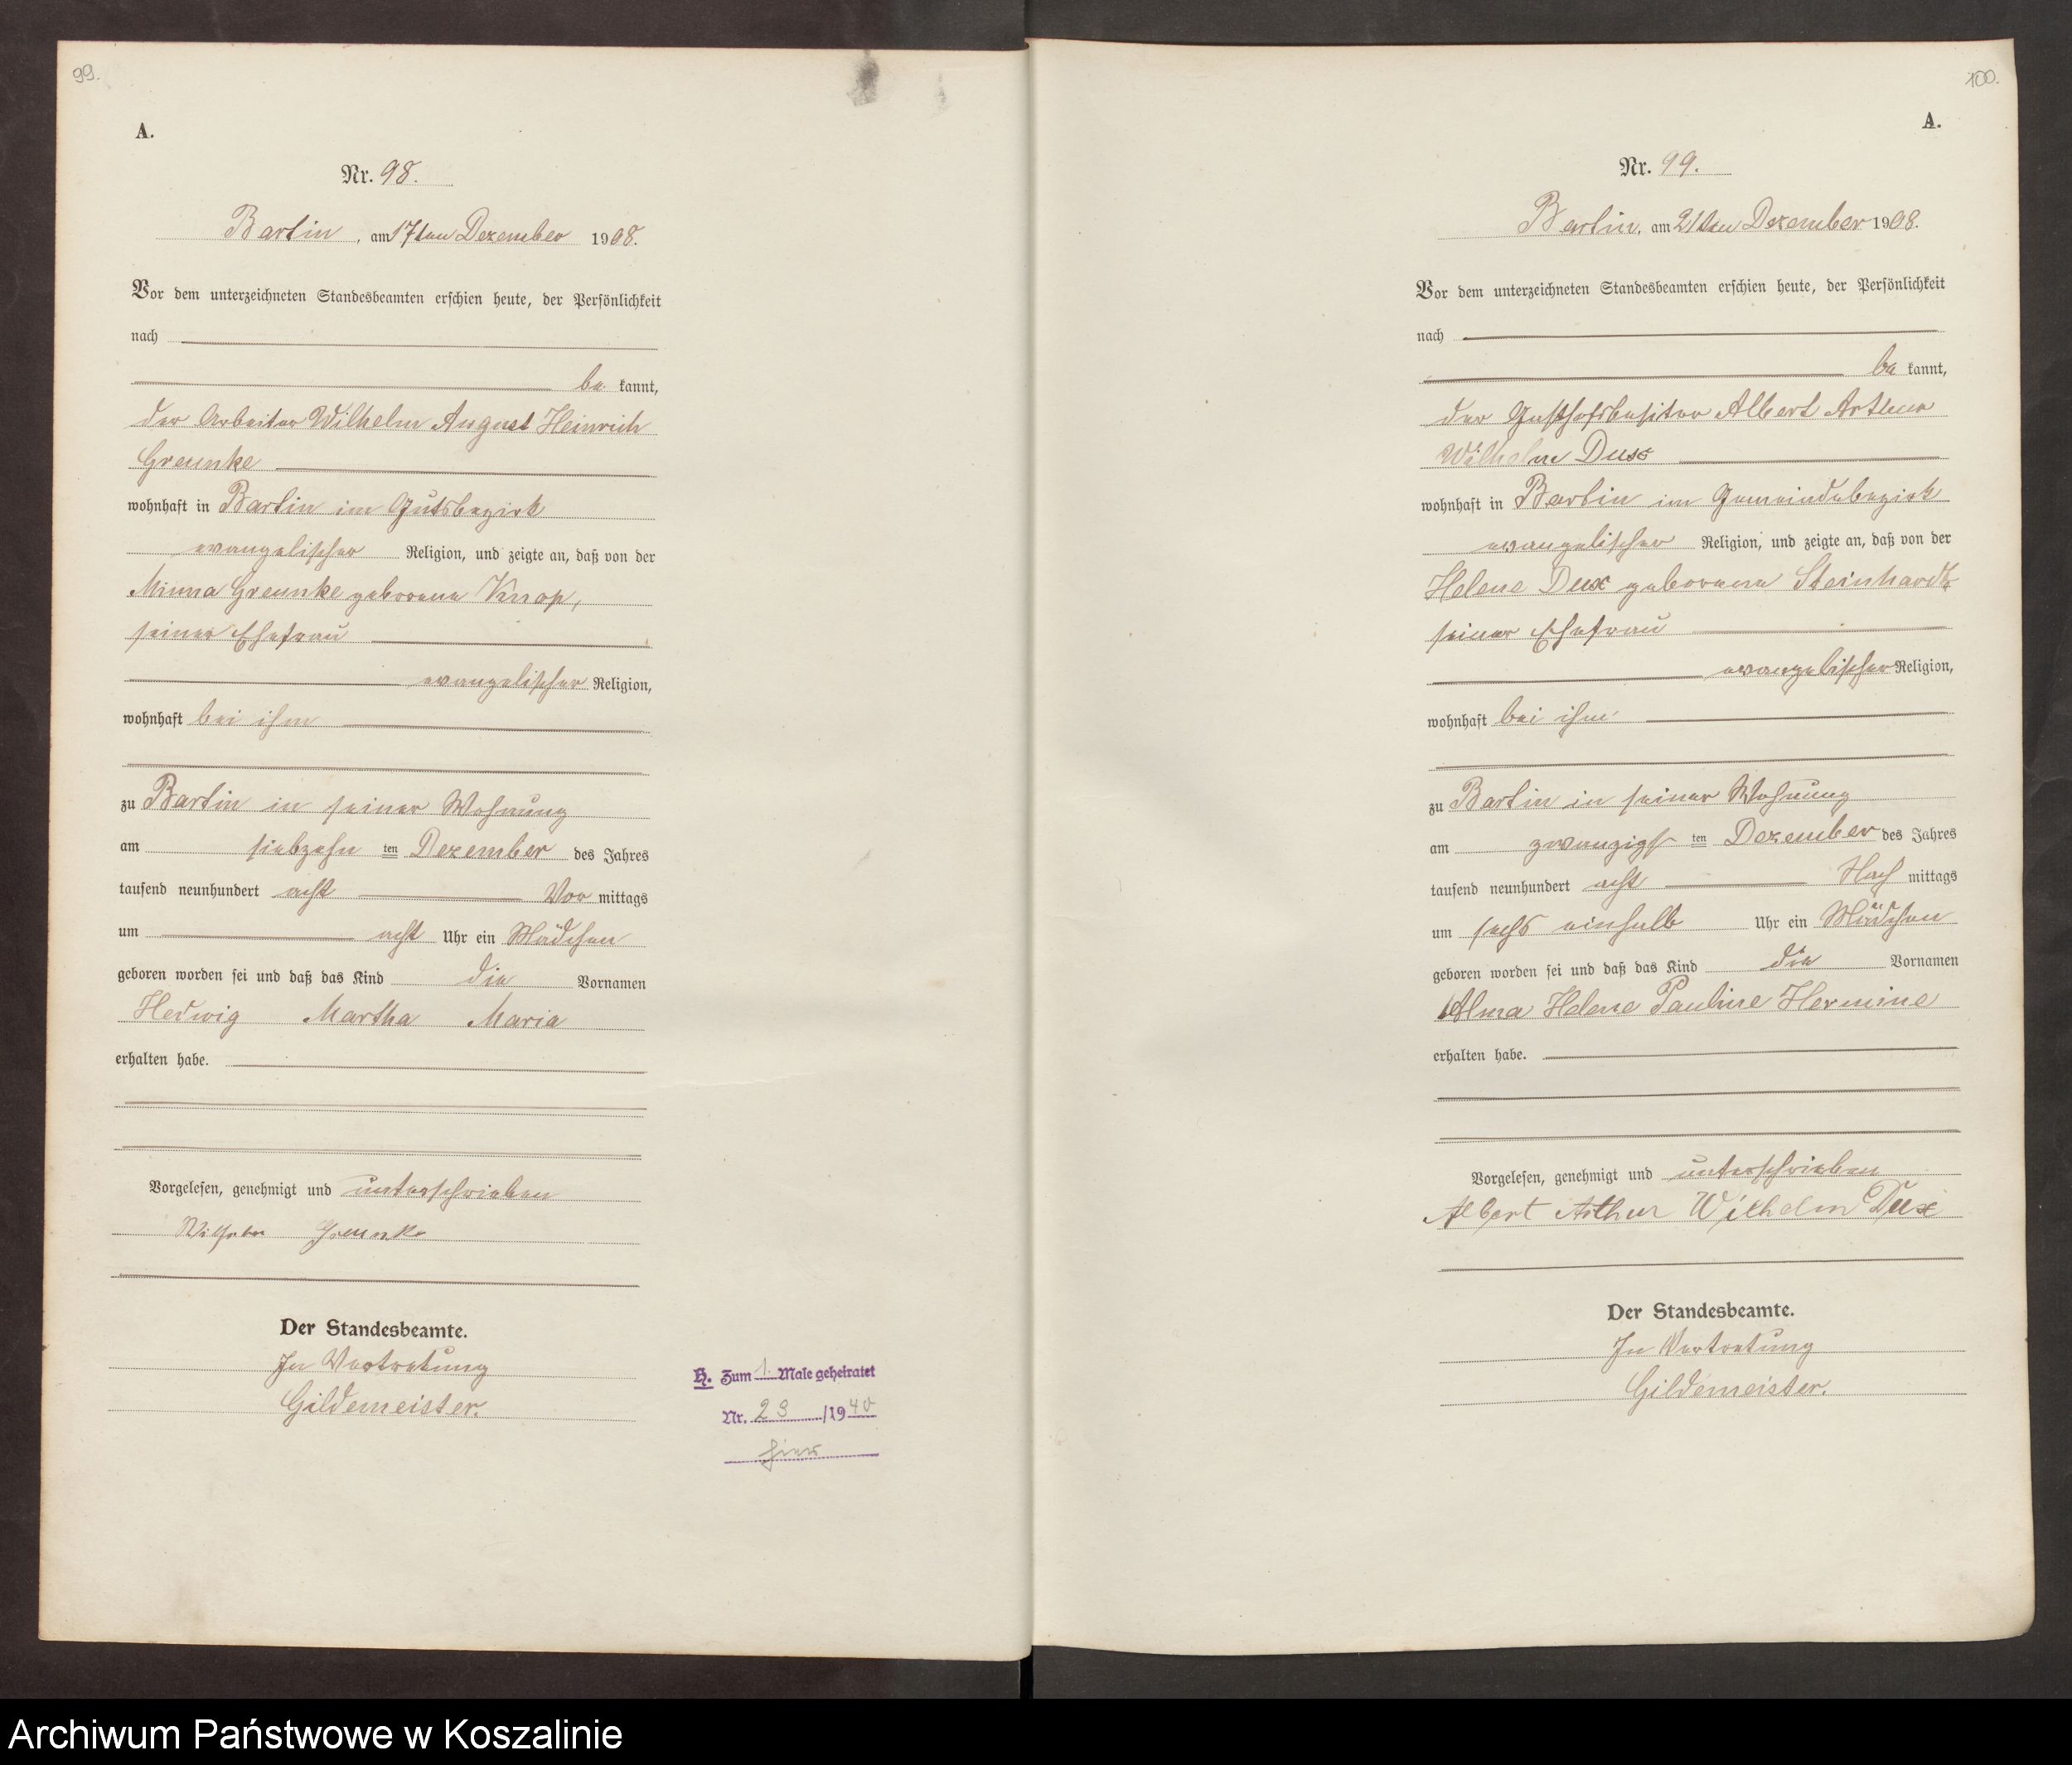 99.
A.
Nr. 98.
Bartin, am 17ten Dezember 1908.
Vor dem unterzeichneten Standesbeamten erschien heute, der Persönlichkeit
nach
be kannt,
der Arbeiter Wilhelm August Heinrich
Greunke
wohnhaft in Bartin im Gutsbezirk
evangelischer Religion, und zeigte an, daß von der
Minna Greunke geborene Knop,
seiner Ehefrau
evangelischer Religion,
wohnhaft bei ihm
zu Bartin in seiner Wohnung
am siebzehn ten Dezember des Jahres
tausend neunhundert acht Vor mittags
um acht Uhr ein Mädchen
geboren worden sei und daß das Kind die Vornamen
Hedwig Martha Maria
erhalten habe.
Vorgelesen, genehmigt und unterschrieben
Wilhelm Greunke
Der Standesbeamte.
In Vertretung
Gildemeister.
H. Zum 1. Male geheiratet
Nr. 23 /1940
hier
100.
A.
Nr. 99.
Bartin, am 21ten Dezember 1908.
Vor dem unterzeichneten Standesbeamten erschien heute, der Persönlichkeit
nach
be kannt,
der Gasthofsbesitzer Albert Arthur
Wilhelm Dux
wohnhaft in Bartin im Gemeindebezirk
evangelischer Religion, und zeigte an, daß von der
Helene Dux geborene Steinhardt,
seiner Ehefrau
evangelischer Religion,
wohnhaft bei ihm
zu Bartin in seiner Wohnung
am zwanzigs ten Dezember des Jahres
tausend neunhundert acht Nach mittags
um sechs einhalb Uhr ein Mädchen
geboren worden sei und daß das Kind die Vornamen
Alma Helene Pauline Hermine
erhalten habe.
Vorgelesen, genehmigt und unterschrieben
Albert Arthur Wilhelm Dux
Der Standesbeamte.
In Vertretung
Gildemeister.
Archiwum Państwowe w Koszalinie